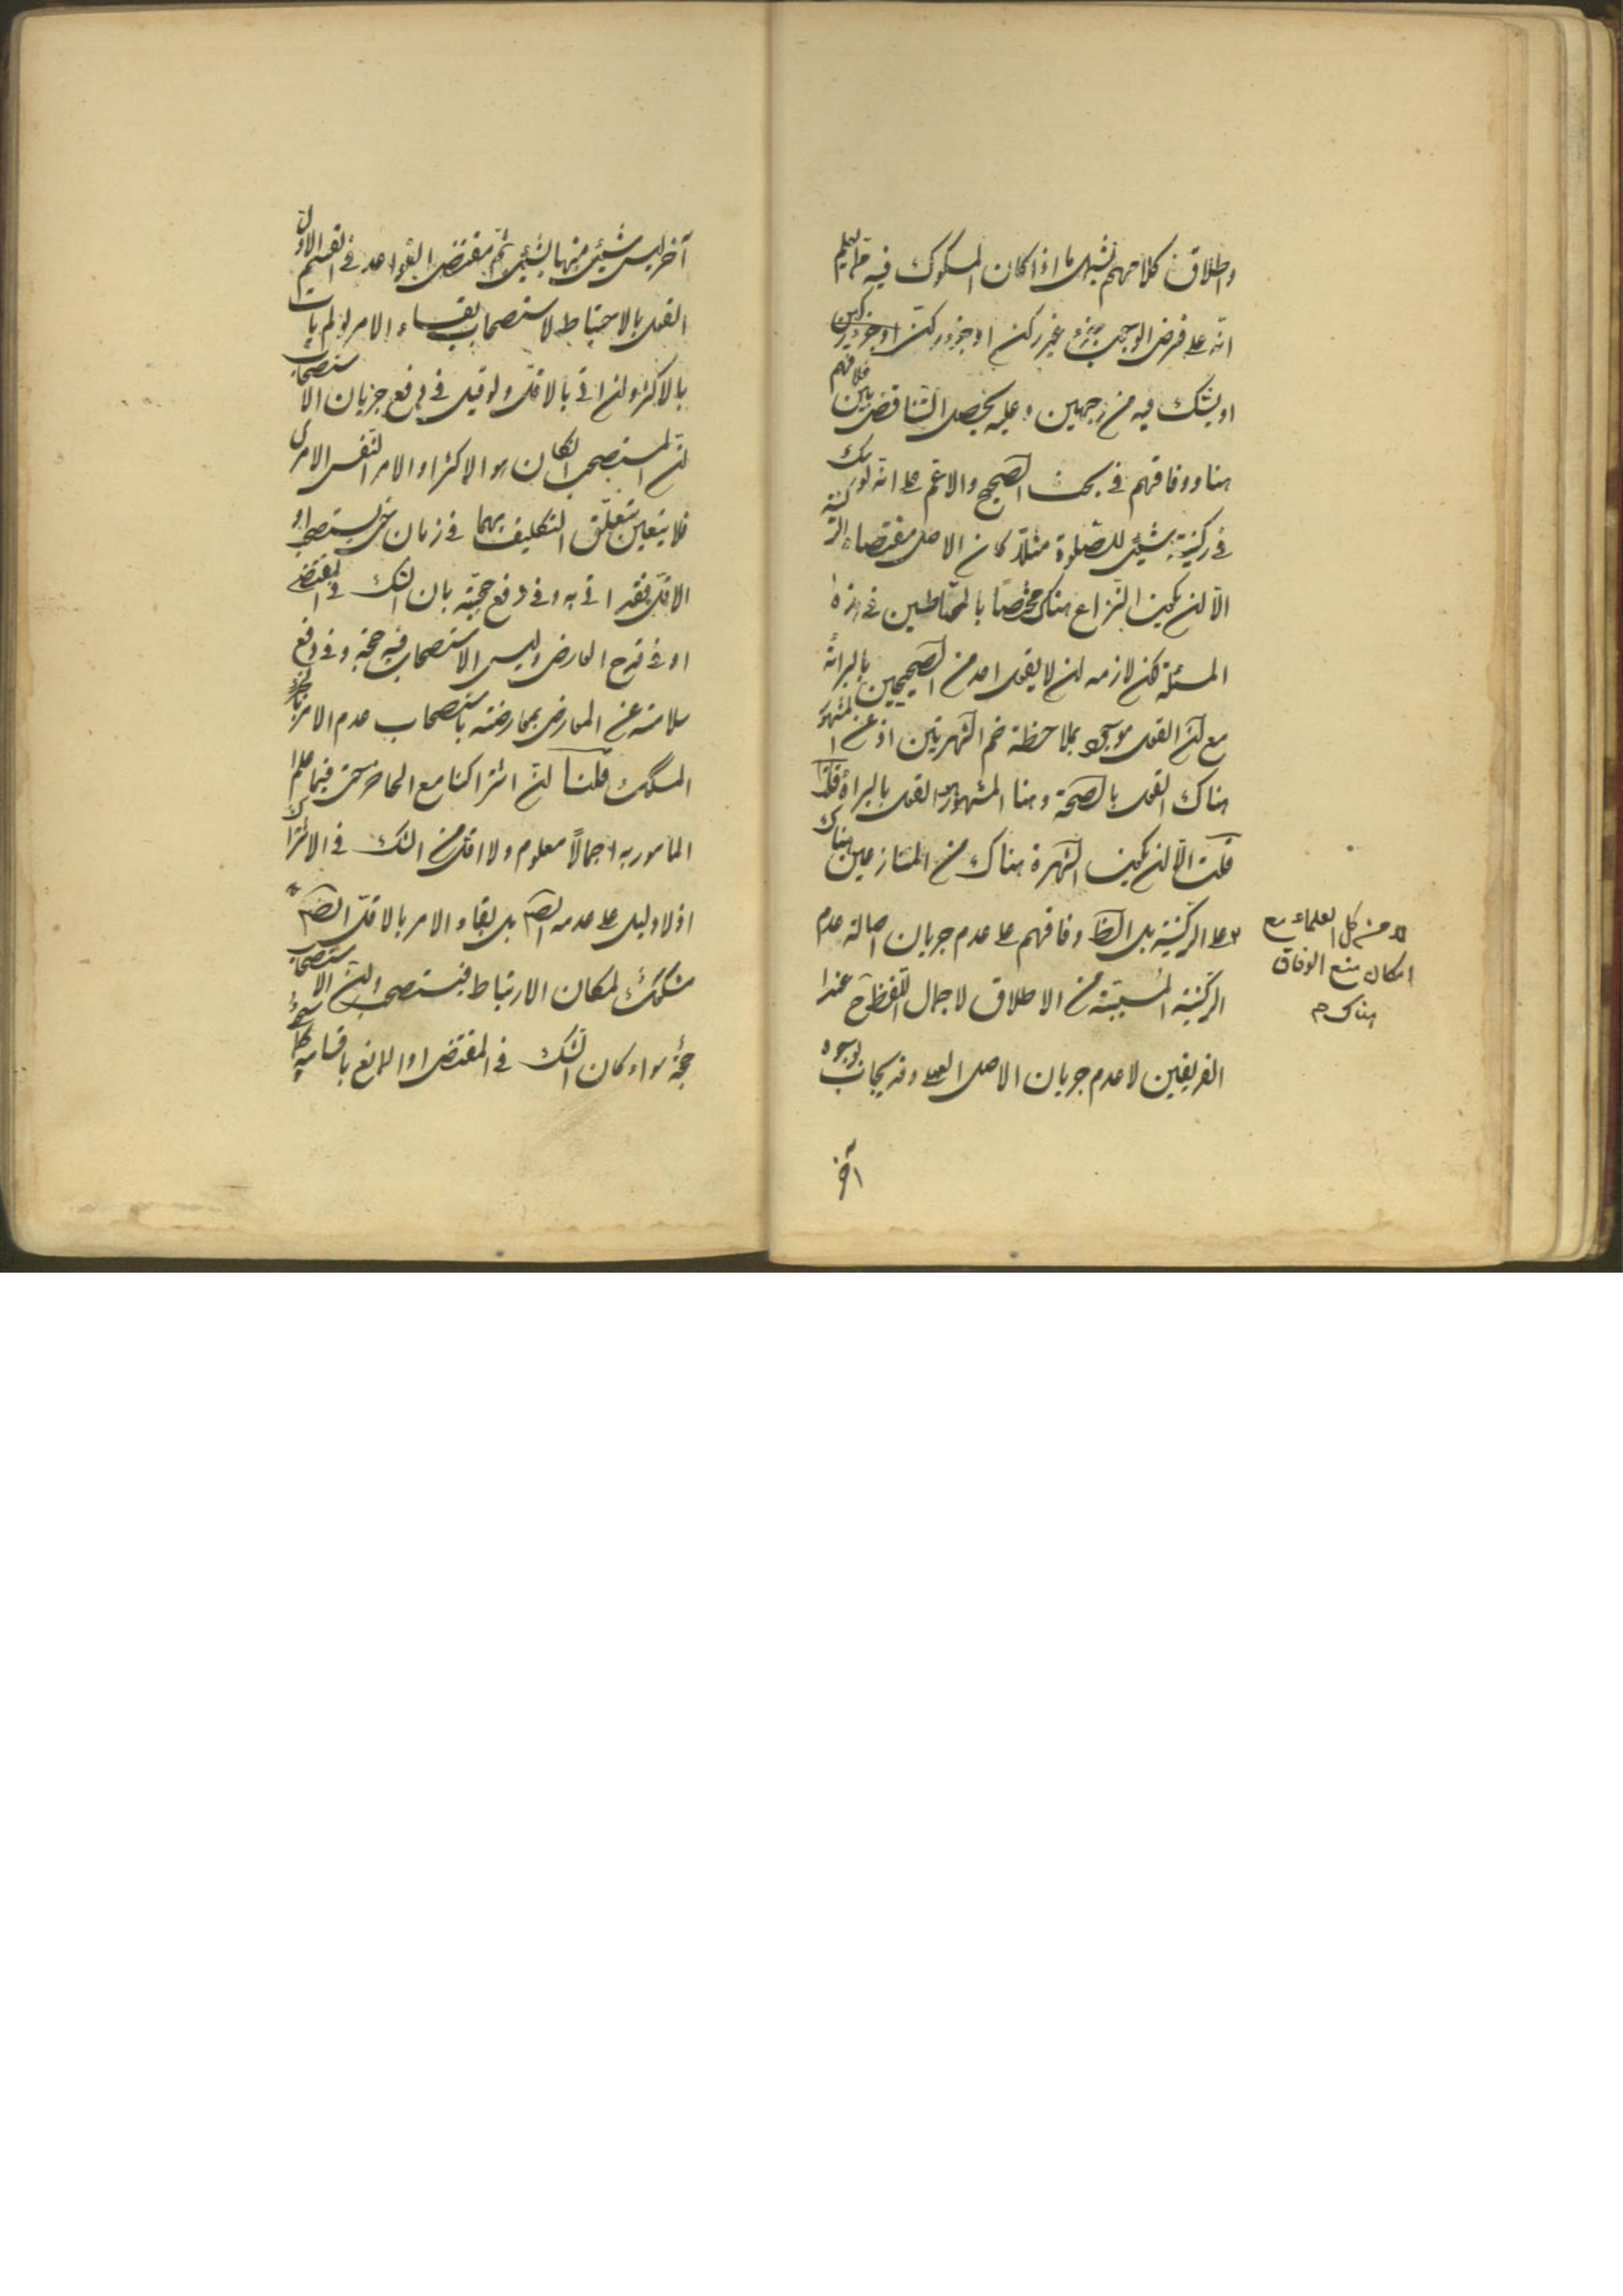 واطلاق كلامهم يشمل ما اذا كان المشكوك فيه مما يعلم
انه على فرض الوجوب جزء غير ركن او جزء ركن او جزء ركن
او يشك فيه من وجهين وعليه يحصل التناقض بين خلافهم
هنا ووفاقهم في بحث الصحيح والاعم على انه لو شك
في ركنية شيئ للصلوة مثلا كان الاصل مقتضاه الركنية
الا ان يكون النزاع هناك مختصا بالمخاطبين في هذه
المسئلة لكن لازمه ان لا يقول احد من الصحيحيين بالبرائة
مع ان القول موجود بملاحظة ضم الشهرتين اذ عن المشهور
هناك القول بالصحة وهنا المشهور هو القول بالبراءة
قلت الا ان يكون الشهرة هناك من المتنازعين هناك
على الركنية بل الظ وفاقهم على عدم جريان اصالة عدم
الركنية المسببة من الاطلاق لاجمال اللفظ ح عند
الفريقين لا عدم جريان الاصل العملى وقد يجاب بوجوه
آخر
لا من كل العلماء مع
امكان منع الوفاق
هناك م
آخر ليس شيئ منها بشيئ ثم مقتضى القواعد في القسم الاول
القول بالاحتياط لاستصحاب بقاء الامر لو لم يات
بالاكثر وان اتى بالاقل ولو قيل في دفع جريان الاستصحاب
ان المستصحب ان كان هو الاكثر او الامر النفس الامرى
فلا يتعين تعلق التكليف بهما في زمان حتى يستصحب او
الاقل فقد اتى به وفي دفع حجيته بان الشك في المقتضى
او في قدح العارض وليس الاستصحاب فيه حجة وفي دفع
سلامته عن المعارض بمعارضته باستصحاب عدم الامر
المشكوك قلنا ان اشتراكنا مع الحاضرين حتى فيما علم
المامور به اجمالا معلوم ولا اقل من الشك في الاشتراك
اذ لا دليل على عدمه ايضا بل بقاء الامر بالاقل ايضا
مشكوك لمكان الارتباط فيستصحب ان الاستصحاب
حجة سواء كان الشك في المقتضى او المانع باقسامه